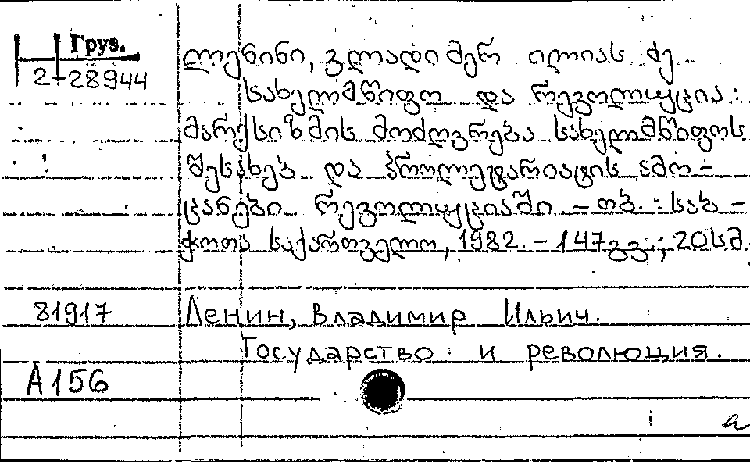 Груз.
2-28944
ლენინი, ვლადიმერ ილიას ძე
სახელმწიფო და რევოლუცია:
მარქსიზმის მოძღვრება სახელმწიფოს
შესახებ და პროლეტარიატის ამო-
ცანები რევოლუციაში. - თბ.: საბ-
ჭოთა საქართველო, 1982. - 147 გვ.; 20 სმ.
81917
Ленин, Владимир Ильич.
Государство и революция.
А156
i a